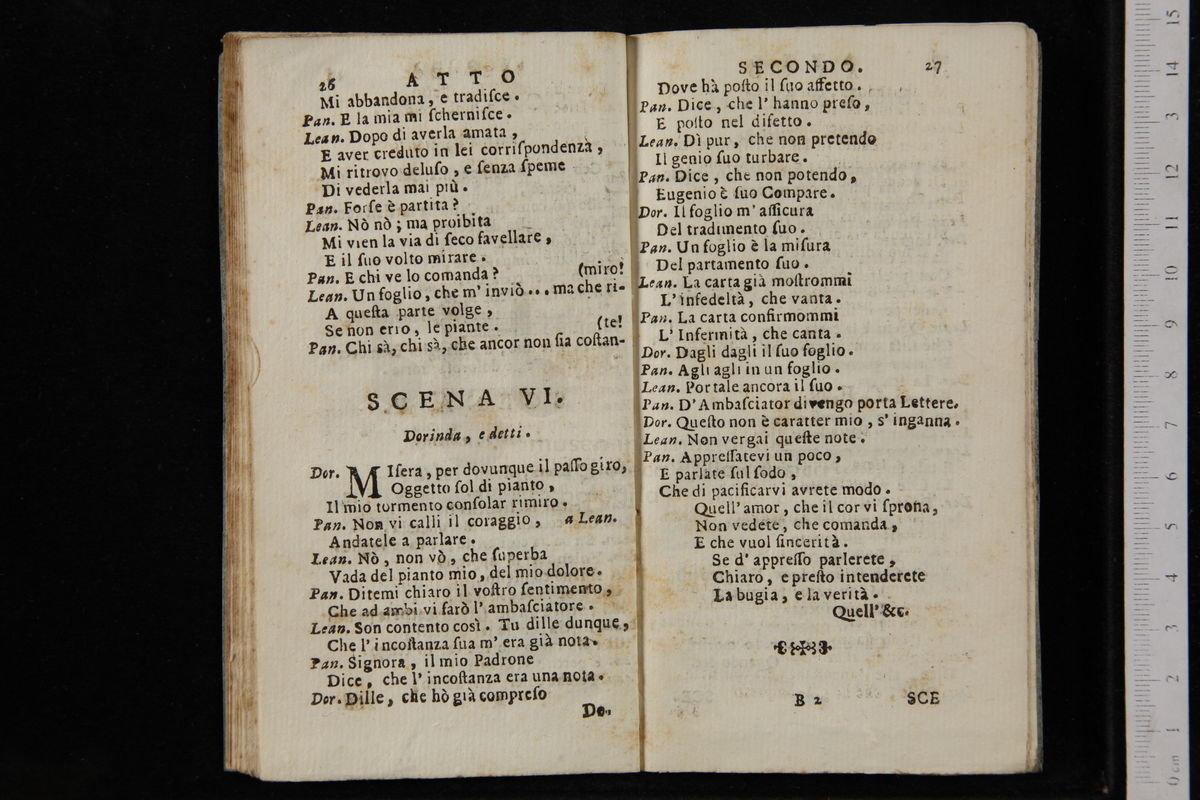 26 ATTO
Mi abbandona, e tradiſce.
Pan. E la mia mi ſcherniſce.
Lean. Dopo di averla amata,
E aver creduto in lei corriſpondenza,
Mi ritrovo deluſo, e ſenza ſpeme
Di vederla mai più.
Pan. Forſe è partita?
Lean. Nò nò; ma proibita
Mi vien la via di ſeco favellare,
E il ſuo volto mirare.
Pan. E chi ve lo comanda? (miro!
Lean. Un foglio, che m' inviò... ma che ri-
A queſta parte volge,
Se non erro, le piante. (te!
Pan. Chi sà, chi sà, che ancor non ſia coſtan-
SCENA VI.
Dorinda, e detti.
Dor. MIſera, per dovunque il paſſo giro,
Oggetto ſol di pianto,
Il mio tormento conſolar rimiro.
Pan. Non vi calli il coraggio, a Lean.
Andatele a parlare.
Lean. Nò, non vò, che ſuperba
Vada del pianto mio, del mio dolore.
Pan. Ditemi chiaro il voſtro ſentimento,
Che ad ambi vi farò l' ambaſciatore.
Lean. Son contento così. Tu dille dunque,
Che l' incoſtanza ſua m' era già nota.
Pan. Signora, il mio Padrone
Dice, che l' incoſtanza era una nota.
Dor. Dille, che hò già compreſo
Do-
SECONDO. 27
Dove hà poſto il ſuo affetto.
Pan. Dice, che l' hanno preſo,
E poſto nel difetto.
Lean. Dì pur, che non pretendo
Il genio ſuo turbare.
Pan. Dice, che non potendo,
Eugenio è ſuo Compare.
Dor. Il foglio m' aſſicura
Del tradimento ſuo.
Pan. Un foglio è la miſura
Del partamento ſuo.
Lean. La carta già moſtrommi
L' infedeltà, che vanta.
Pan. La carta confirmommi
L' Infermità, che canta.
Dor. Dagli dagli il ſuo foglio.
Pan. Agli agli in un foglio.
Lean. Portale ancora il ſuo.
Pan. D' Ambaſciator divengo porta Lettere.
Dor. Queſto non è caratter mio, s' inganna.
Lean. Non vergai queſte note.
Pan. Appreſſatevi un poco,
E parlate ſul ſodo,
Che di pacificarvi avrete modo.
Quell' amor, che il cor vi ſprona,
Non vedete, che comanda,
E che vuol ſincerità.
Se d' appreſſo parlerete,
Chiaro, e preſto intenderete
La bugia, e la verità.
Quell' &c.
B 2 SCE
15
14
3
12
11
10
9
8
7
6
5
4
3
2
1
0 cm